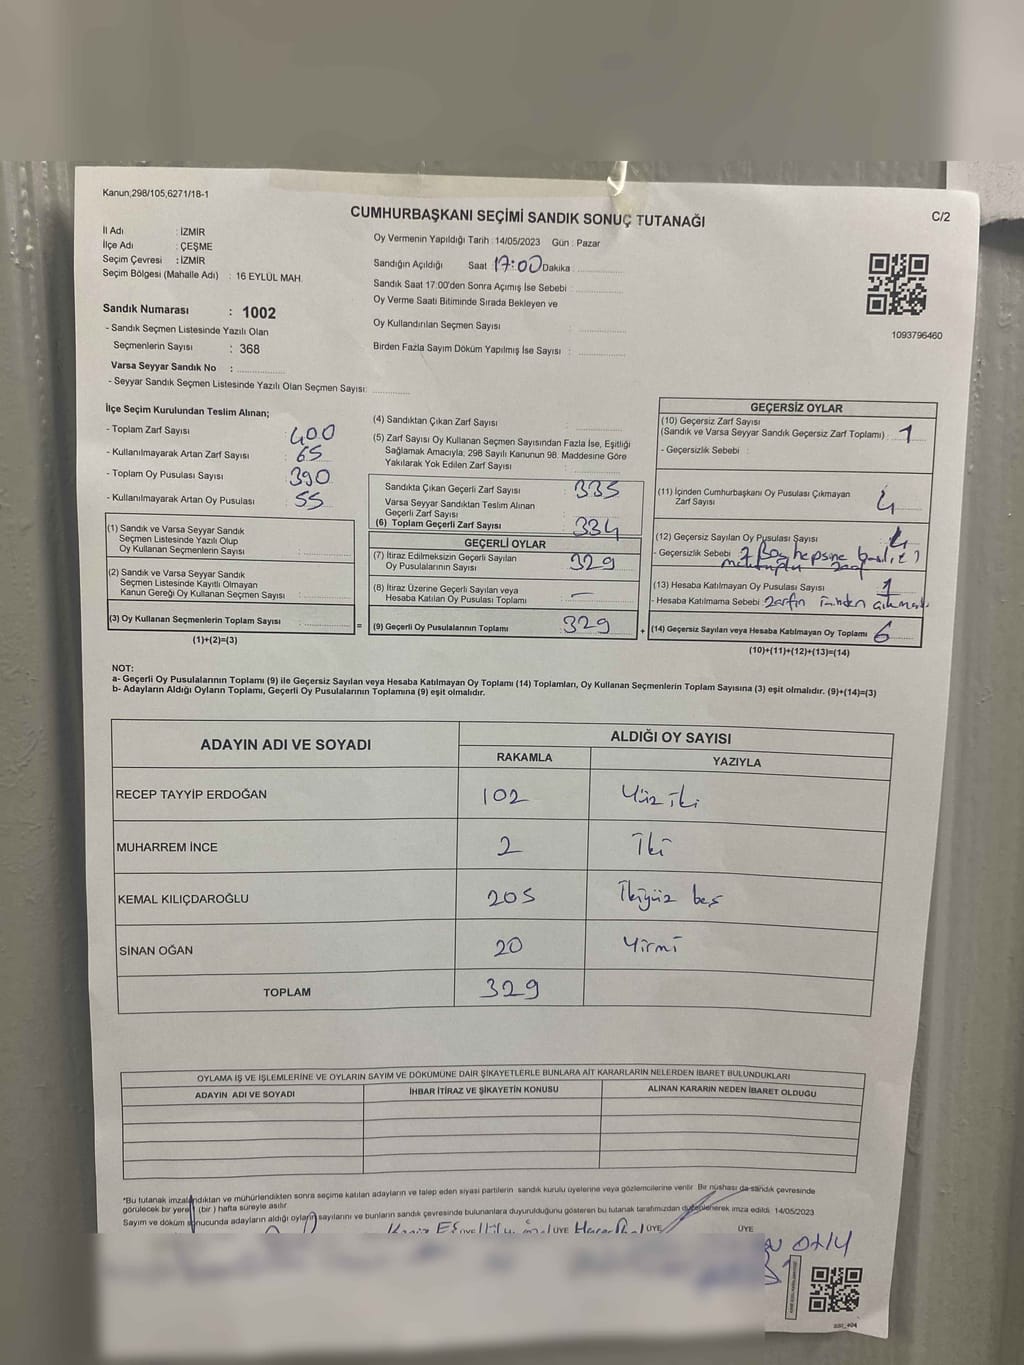 Kanun;298/105,6271/18-1
CUMHURBAŞKANI SEÇİMİ SANDIK SONUÇ TUTANAĞI
C/2
İl Adı : İZMİR
İlçe Adı : ÇEŞME
Seçim Çevresi : İZMİR
Seçim Bölgesi (Mahalle Adı) : 16 EYLÜL MAH.
Oy Vermenin Yapıldığı Tarih : 14/05/2023 Gün : Pazar
Sandığın Açıldığı Saat 17:00 Dakika
Sandık Saat 17:00'den Sonra Açımış İse Sebebi :
Oy Verme Saati Bitiminde Sırada Bekleyen ve
Oy Kullandırılan Seçmen Sayısı :
Birden Fazla Sayım Döküm Yapılmış İse Sayısı :
1093796460
Sandık Numarası : 1002
- Sandık Seçmen Listesinde Yazılı Olan
Seçmenlerin Sayısı : 368
Varsa Seyyar Sandık No :
- Seyyar Sandık Seçmen Listesinde Yazılı Olan Seçmen Sayısı:
İlçe Seçim Kurulundan Teslim Alınan;
- Toplam Zarf Sayısı 400
- Kullanılmayarak Artan Zarf Sayısı : 65
- Toplam Oy Pusulası Sayısı : 390
- Kullanılmayarak Artan Oy Pusulası : 55
(1) Sandık ve Varsa Seyyar Sandık
Seçmen Listesinde Yazılı Olup
Oy Kullanan Seçmenlerin Sayısı :
(2) Sandık ve Varsa Seyyar Sandık
Seçmen Listesinde Kayıtlı Olmayan
Kanun Gereği Oy Kullanan Seçmen Sayısı :
(3) Oy Kullanan Seçmenlerin Toplam Sayısı :
(1)+(2)=(3)
=
(4) Sandıktan Çıkan Zarf Sayısı :
(5) Zarf Sayısı Oy Kullanan Seçmen Sayısından Fazla İse, Eşitliği
Sağlamak Amacıyla; 298 Sayılı Kanunun 98. Maddesine Göre
Yakılarak Yok Edilen Zarf Sayısı :
Sandıkta Çıkan Geçerli Zarf Sayısı : 335
Varsa Seyyar Sandıktan Teslim Alınan
Geçerli Zarf Sayısı :
(6) Toplam Geçerli Zarf Sayısı : 334
GEÇERLİ OYLAR
(7) İtiraz Edilmeksizin Geçerli Sayılan
Oy Pusulalarının Sayısı : 329
(8) İtiraz Üzerine Geçerli Sayılan veya
Hesaba Katılan Oy Pusulası Toplamı : —
(9) Geçerli Oy Pusulalarının Toplamı : 329
+
GEÇERSİZ OYLAR
(10) Geçersiz Zarf Sayısı
(Sandık ve Varsa Seyyar Sandık Geçersiz Zarf Toplamı) : 1
- Geçersizlik Sebebi :
(11) İçinden Cumhurbaşkanı Oy Pusulası Çıkmayan
Zarf Sayısı 4
(12) Geçersiz Sayılan Oy Pusulası Sayısı 4
- Geçersizlik Sebebi hepsine
(13) Hesaba Katılmayan Oy Pusulası Sayısı : 1
- Hesaba Katılmama Sebebi zarfın
(14) Geçersiz Sayılan veya Hesaba Katılmayan Oy Toplamı 6
(10)+(11)+(12)+(13)=(14)
NOT:
a- Geçerli Oy Pusulalarının Toplamı (9) ile Geçersiz Sayılan veya Hesaba Katılmayan Oy Toplamı (14) Toplamları, Oy Kullanan Seçmenlerin Toplam Sayısına (3) eşit olmalıdır. (9)+(14)=(3)
b- Adayların Aldığı Oyların Toplamı, Geçerli Oy Pusulalarının Toplamına (9) eşit olmalıdır.
ADAYIN ADI VE SOYADI
ALDIĞI OY SAYISI
RAKAMLA YAZIYLA
RECEP TAYYİP ERDOĞAN 102 Yüz iki
MUHARREM İNCE 2 İki
KEMAL KILIÇDAROĞLU 205 İkiyüz beş
SİNAN OĞAN 20 Yirmi
TOPLAM 329
OYLAMA İŞ VE İŞLEMLERİNE VE OYLARIN SAYIM VE DÖKÜMÜNE DAİR ŞİKAYETLERLE BUNLARA AİT KARARLARIN NELERDEN İBARET BULUNDUKLARI
ADAYIN ADI VE SOYADI İHBAR İTİRAZ VE ŞİKAYETİN KONUSU ALINAN KARARIN NEDEN İBARET OLDUĞU
*Bu tutanak imzalandıktan ve mühürlendikten sonra seçime katılan adayların ve talep eden siyasi partilerin sandık kurulu üyelerine veya gözlemcilerine verilir. Bir nüshası da sandık çevresinde
görülecek bir yere (bir) hafta süreyle asılır.
Sayım ve döküm sonucunda adayların aldığı oyların sayılarını ve bunların sandık çevresinde bulunanlara duyurulduğunu gösteren bu tutanak tarafımızdan düzenlenerek imza edildi. 14/05/2023
ÜYE ÜYE ÜYE ÜYE